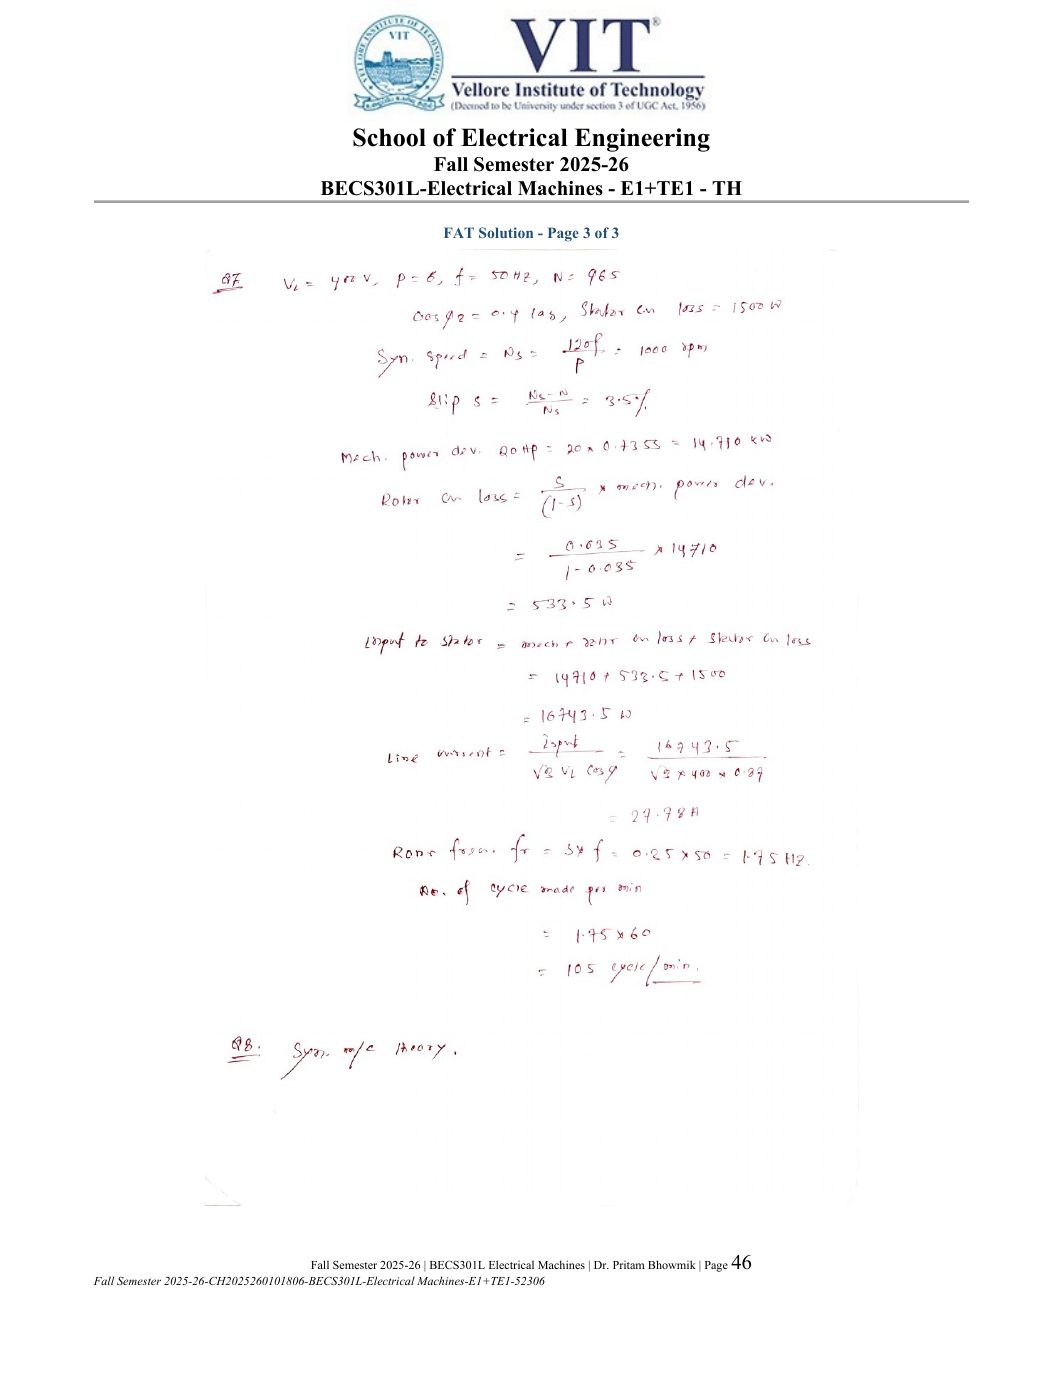 VELLORE INSTITUTE OF TECHNOLOGY
VIT
VIT®
Vellore Institute of Technology
(Deemed to be University under section 3 of UGC Act, 1956)
School of Electrical Engineering
Fall Semester 2025-26
BECS301L-Electrical Machines - E1+TE1 - TH
FAT Solution - Page 3 of 3
Q7 V_L = 400 V, P = 6, f = 50 Hz, N = 965
cos φ2 = 0.4 lag, Stator cu loss = 1500 W
Syn. Speed = Ns = 120f / P = 1000 rpm
Slip s = Ns - N / Ns = 3.5%
Mech. power dev. 20 HP = 20 × 0.7355 = 14.710 kW
Rotor cu loss = s / (1-s) × mech. power dev.
= 0.035 / 1 - 0.035 × 14710
= 533.5 W
Input to stator = mech + rotor cu loss + Stator cu loss
= 14710 + 533.5 + 1500
= 16743.5 W
Line current = Input / √3 V_L cos φ = 16743.5 / √3 × 400 × 0.87
= 27.78 A
Rotor frequ. fr = s × f = 0.25 × 50 = 1.75 Hz.
No. of cycle made per min
= 1.75 × 60
= 105 cycle/min.
Q8. Syn. m/c theory.
Fall Semester 2025-26 | BECS301L Electrical Machines | Dr. Pritam Bhowmik | Page 46
Fall Semester 2025-26-CH2025260101806-BECS301L-Electrical Machines-E1+TE1-52306